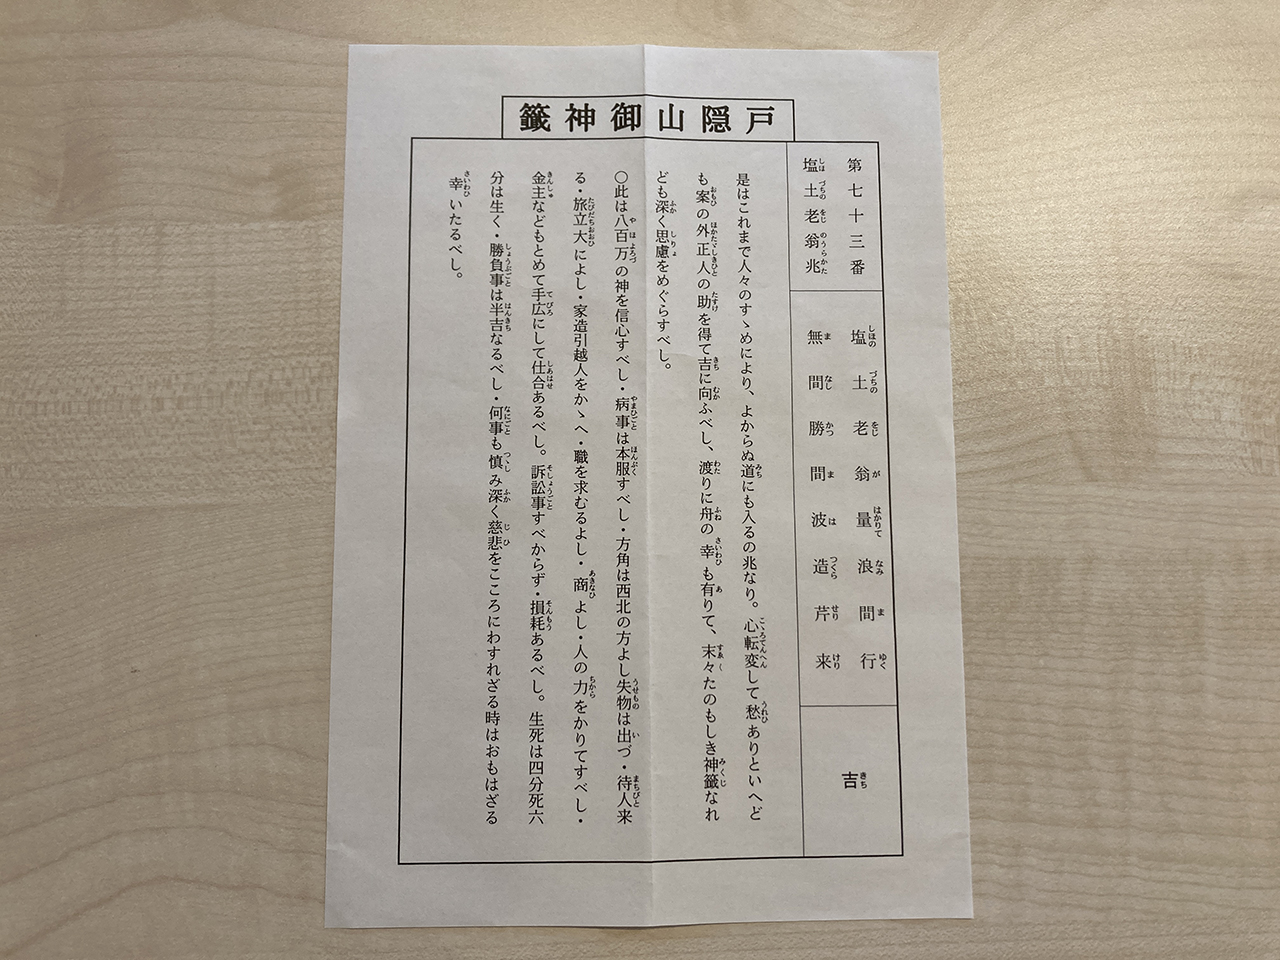 戸隠山御神籤
第七十三番
塩土老翁兆
塩土老翁が量浪間行
無間勝間波造芹来
吉
是はこれまで人々のすゝめにより、よからぬ道にも入るの兆なり。心転変して愁ありといへど
も案の外正人の助を得て吉に向ふべし、渡りに舟の幸も有りて、末々たのもしき神籤なれ
ども深く思慮をめぐらすべし。
〇此は八百万の神を信心すべし・病事は本服すべし・方角は西北の方よし失物は出づ・待人来
る・旅立大によし・家造引越人をかゝへ・職を求むるよし・商よし・人の力をかりてすべし・
金主などもとめて手広にして仕合あるべし。訴訟事すべからず・損耗あるべし。生死は四分死六
分は生く・勝負事は半吉なるべし・何事も慎み深く慈悲をこころにわすれざる時はおもはざる
幸いたるべし。